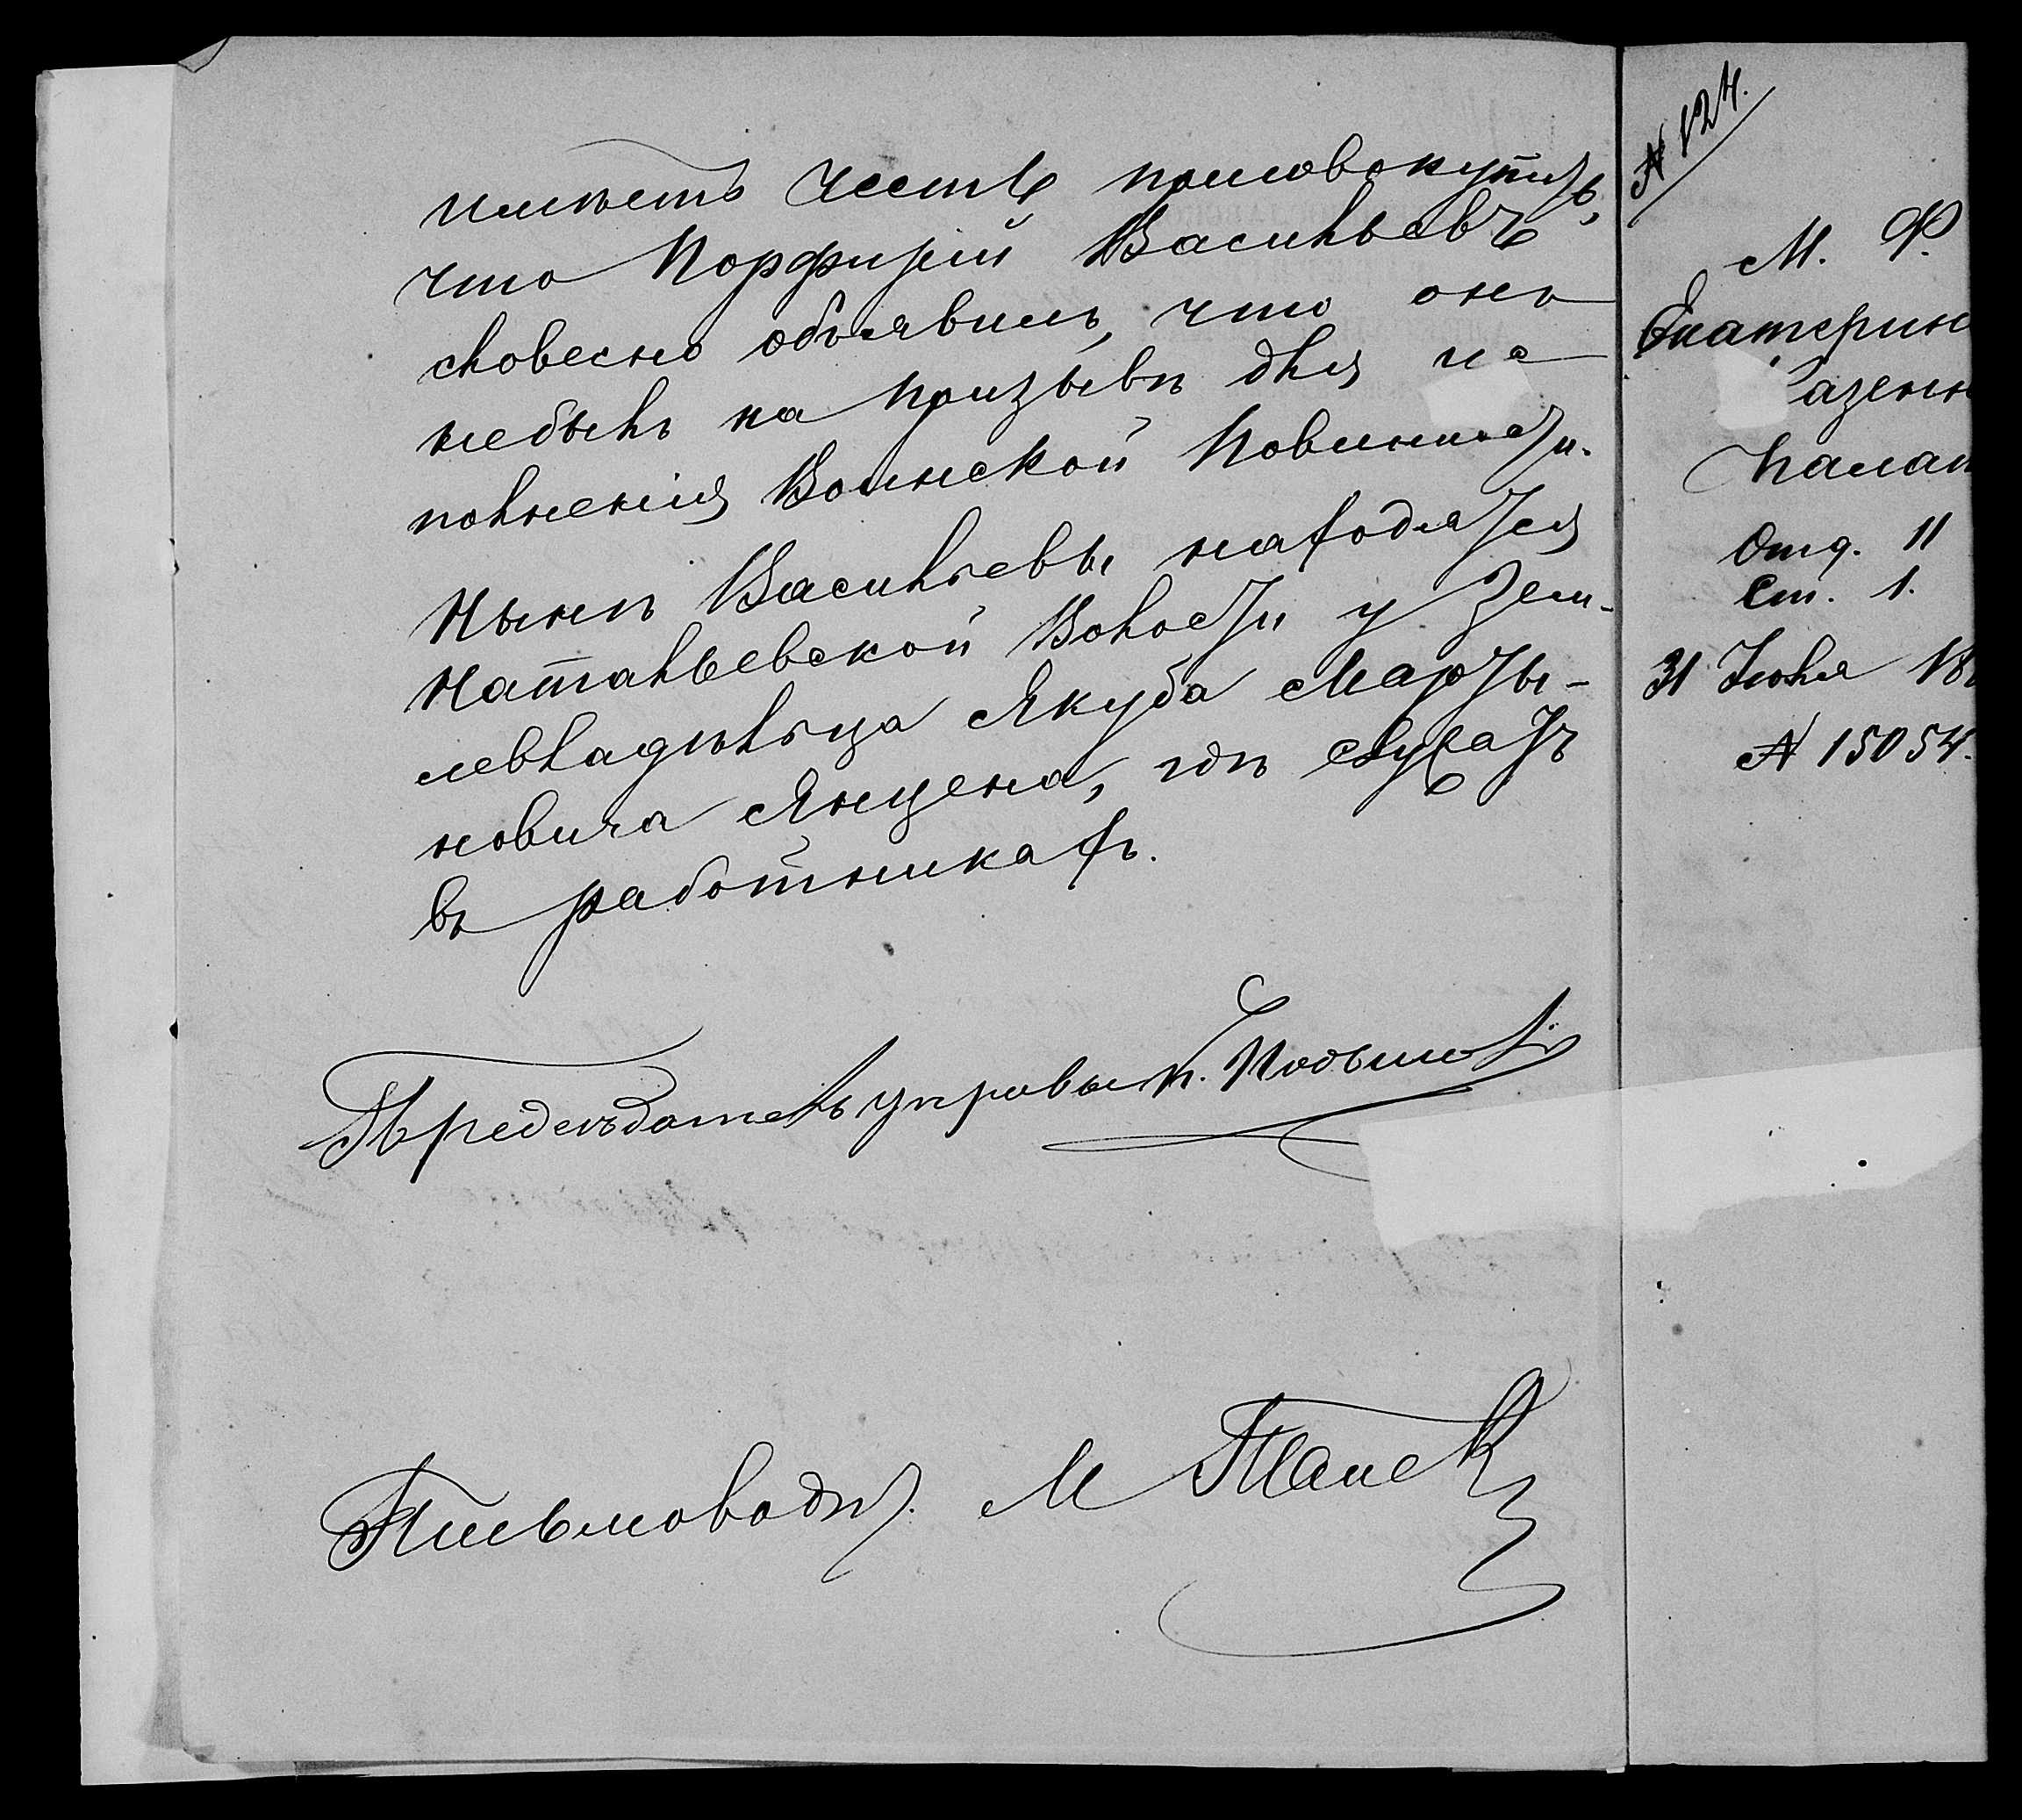 имѣетъ честь присовокупить,
что Порфирій Васильевъ
словесно объявилъ, что онъ
небылъ на призывѣ для ис
полненія Воинской Повинности.
Нынѣ Васильевы находятся
Натальевской Волости у Зем-
левладѣльца Якуба Марты-
новича Янцена, гдѣ служатъ
въ работникахъ.
Предсѣдатель управы П.
Письмоводит. М
№ 124.
М. Ф.
Екатерин
Казенн
Палат
Отд. II
Ст. 1.
31 Іюля 18
№ 15054.